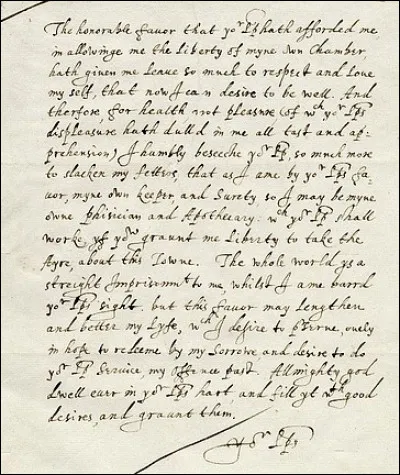 The honorable favor that yor Lp hath afforded me,
in allowinge me the Liberty of myne own Chamber,
hath given me leave so much to respect and love
my self, that now I can desire to be well. And
therfore, for health not pleasure (of wch yor Lps
displeasure hath dulld in me all tast and ap-
prehension) I humbly beseeche yor Lp, so much more
to slacken my fetters, that as I ame by yor Lps fa-
vor, myne own keeper, and surety, so I may be myne
owne phisician and Apothecary: wch yor Lp shall
worke, yf yow graunt me Liberty to take the
Ayre, about this Towne. The whole world ys a
streight Imprisonmt to me whilst I ame barrd
yor Lps sight. but this favor may lengthen
and better my Lyfe, wch I desire to preserve, onely
in hope to redeeme by my sorrowe and desire to do
yor Lp service, my offence past. Allmighty god
dwell ever in yor Lps hart, and fill yt wth good
desires, and graunt them.
Yor Lps